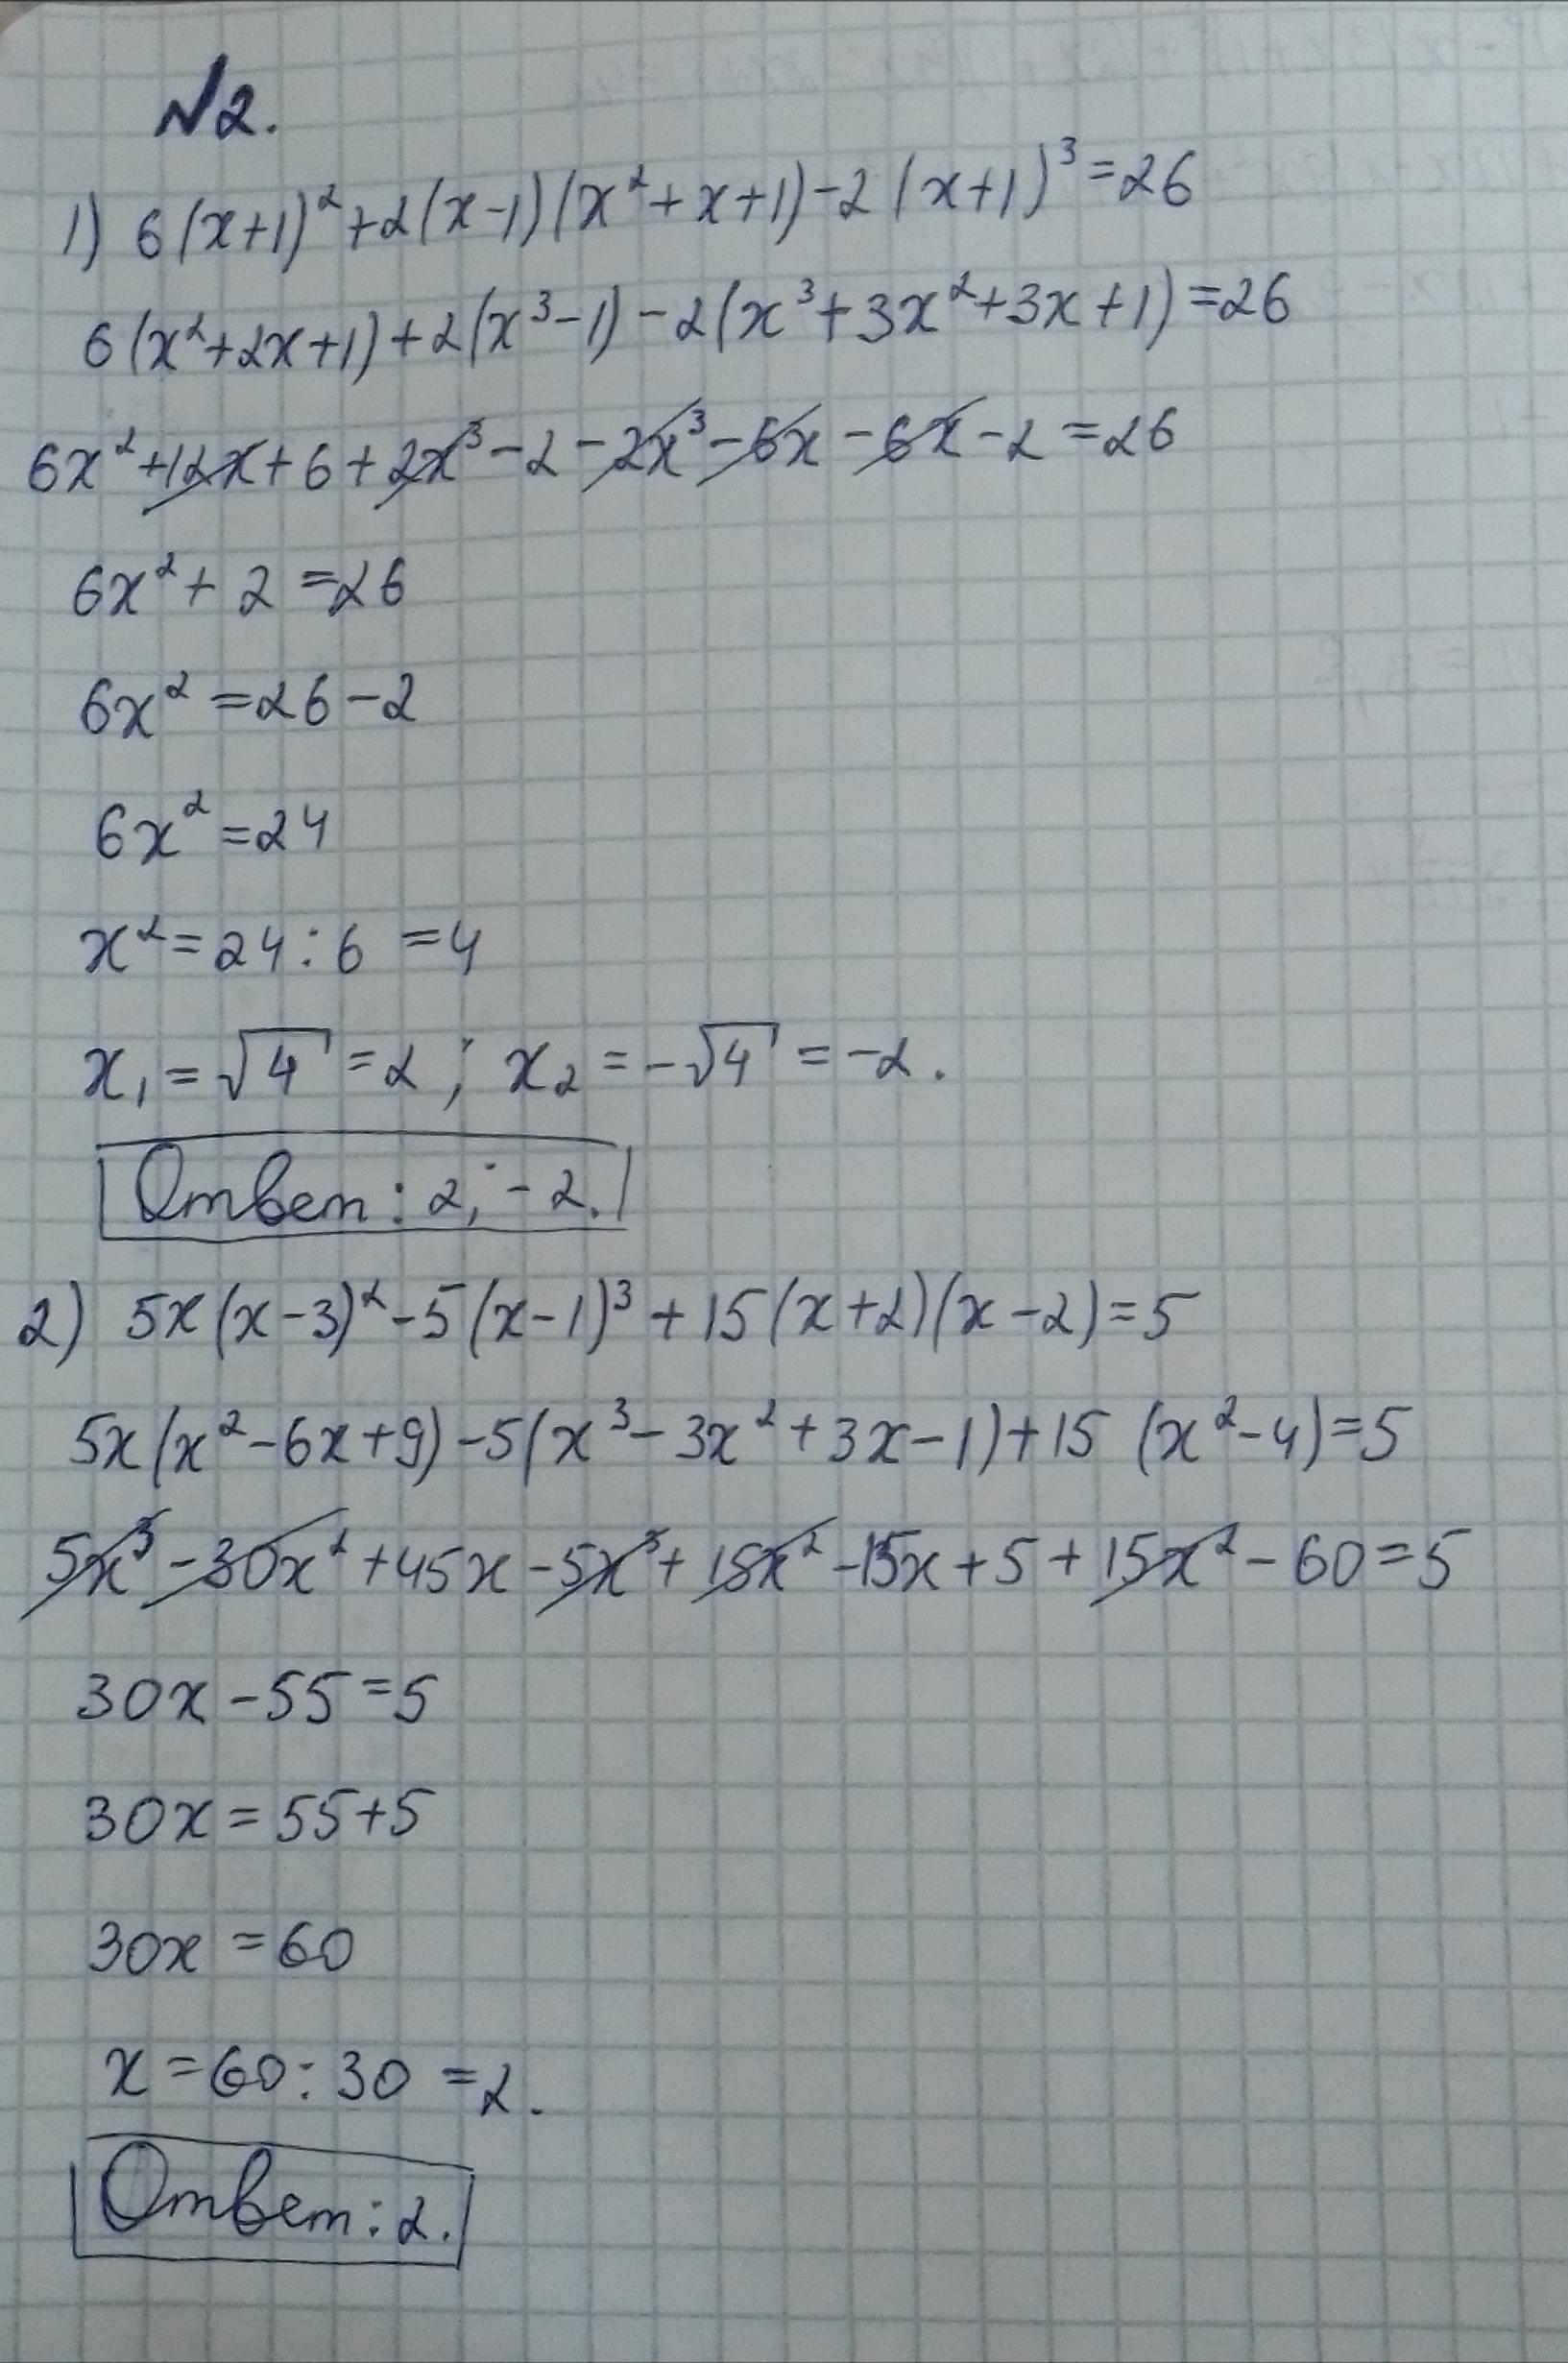 №2.
1) 6(x+1)²+2(x-1)(x²+x+1)-2(x+1)³=26
6(x²+2x+1)+2(x³-1)-2(x³+3x²+3x+1)=26
6x²+12x+6+2x³-2-2x³-6x-6x-2=26
6x²+2=26
6x²=26-2
6x²=24
x²=24:6=4
x₁=√4=2; x₂=-√4=-2.
Ответ: 2; -2.
2) 5x(x-3)²-5(x-1)³+15(x+2)(x-2)=5
5x(x²-6x+9)-5(x³-3x²+3x-1)+15(x²-4)=5
5x³-30x²+45x-5x³+15x²-15x+5+15x²-60=5
30x-55=5
30x=55+5
30x=60
x=60:30=2.
Ответ: 2.